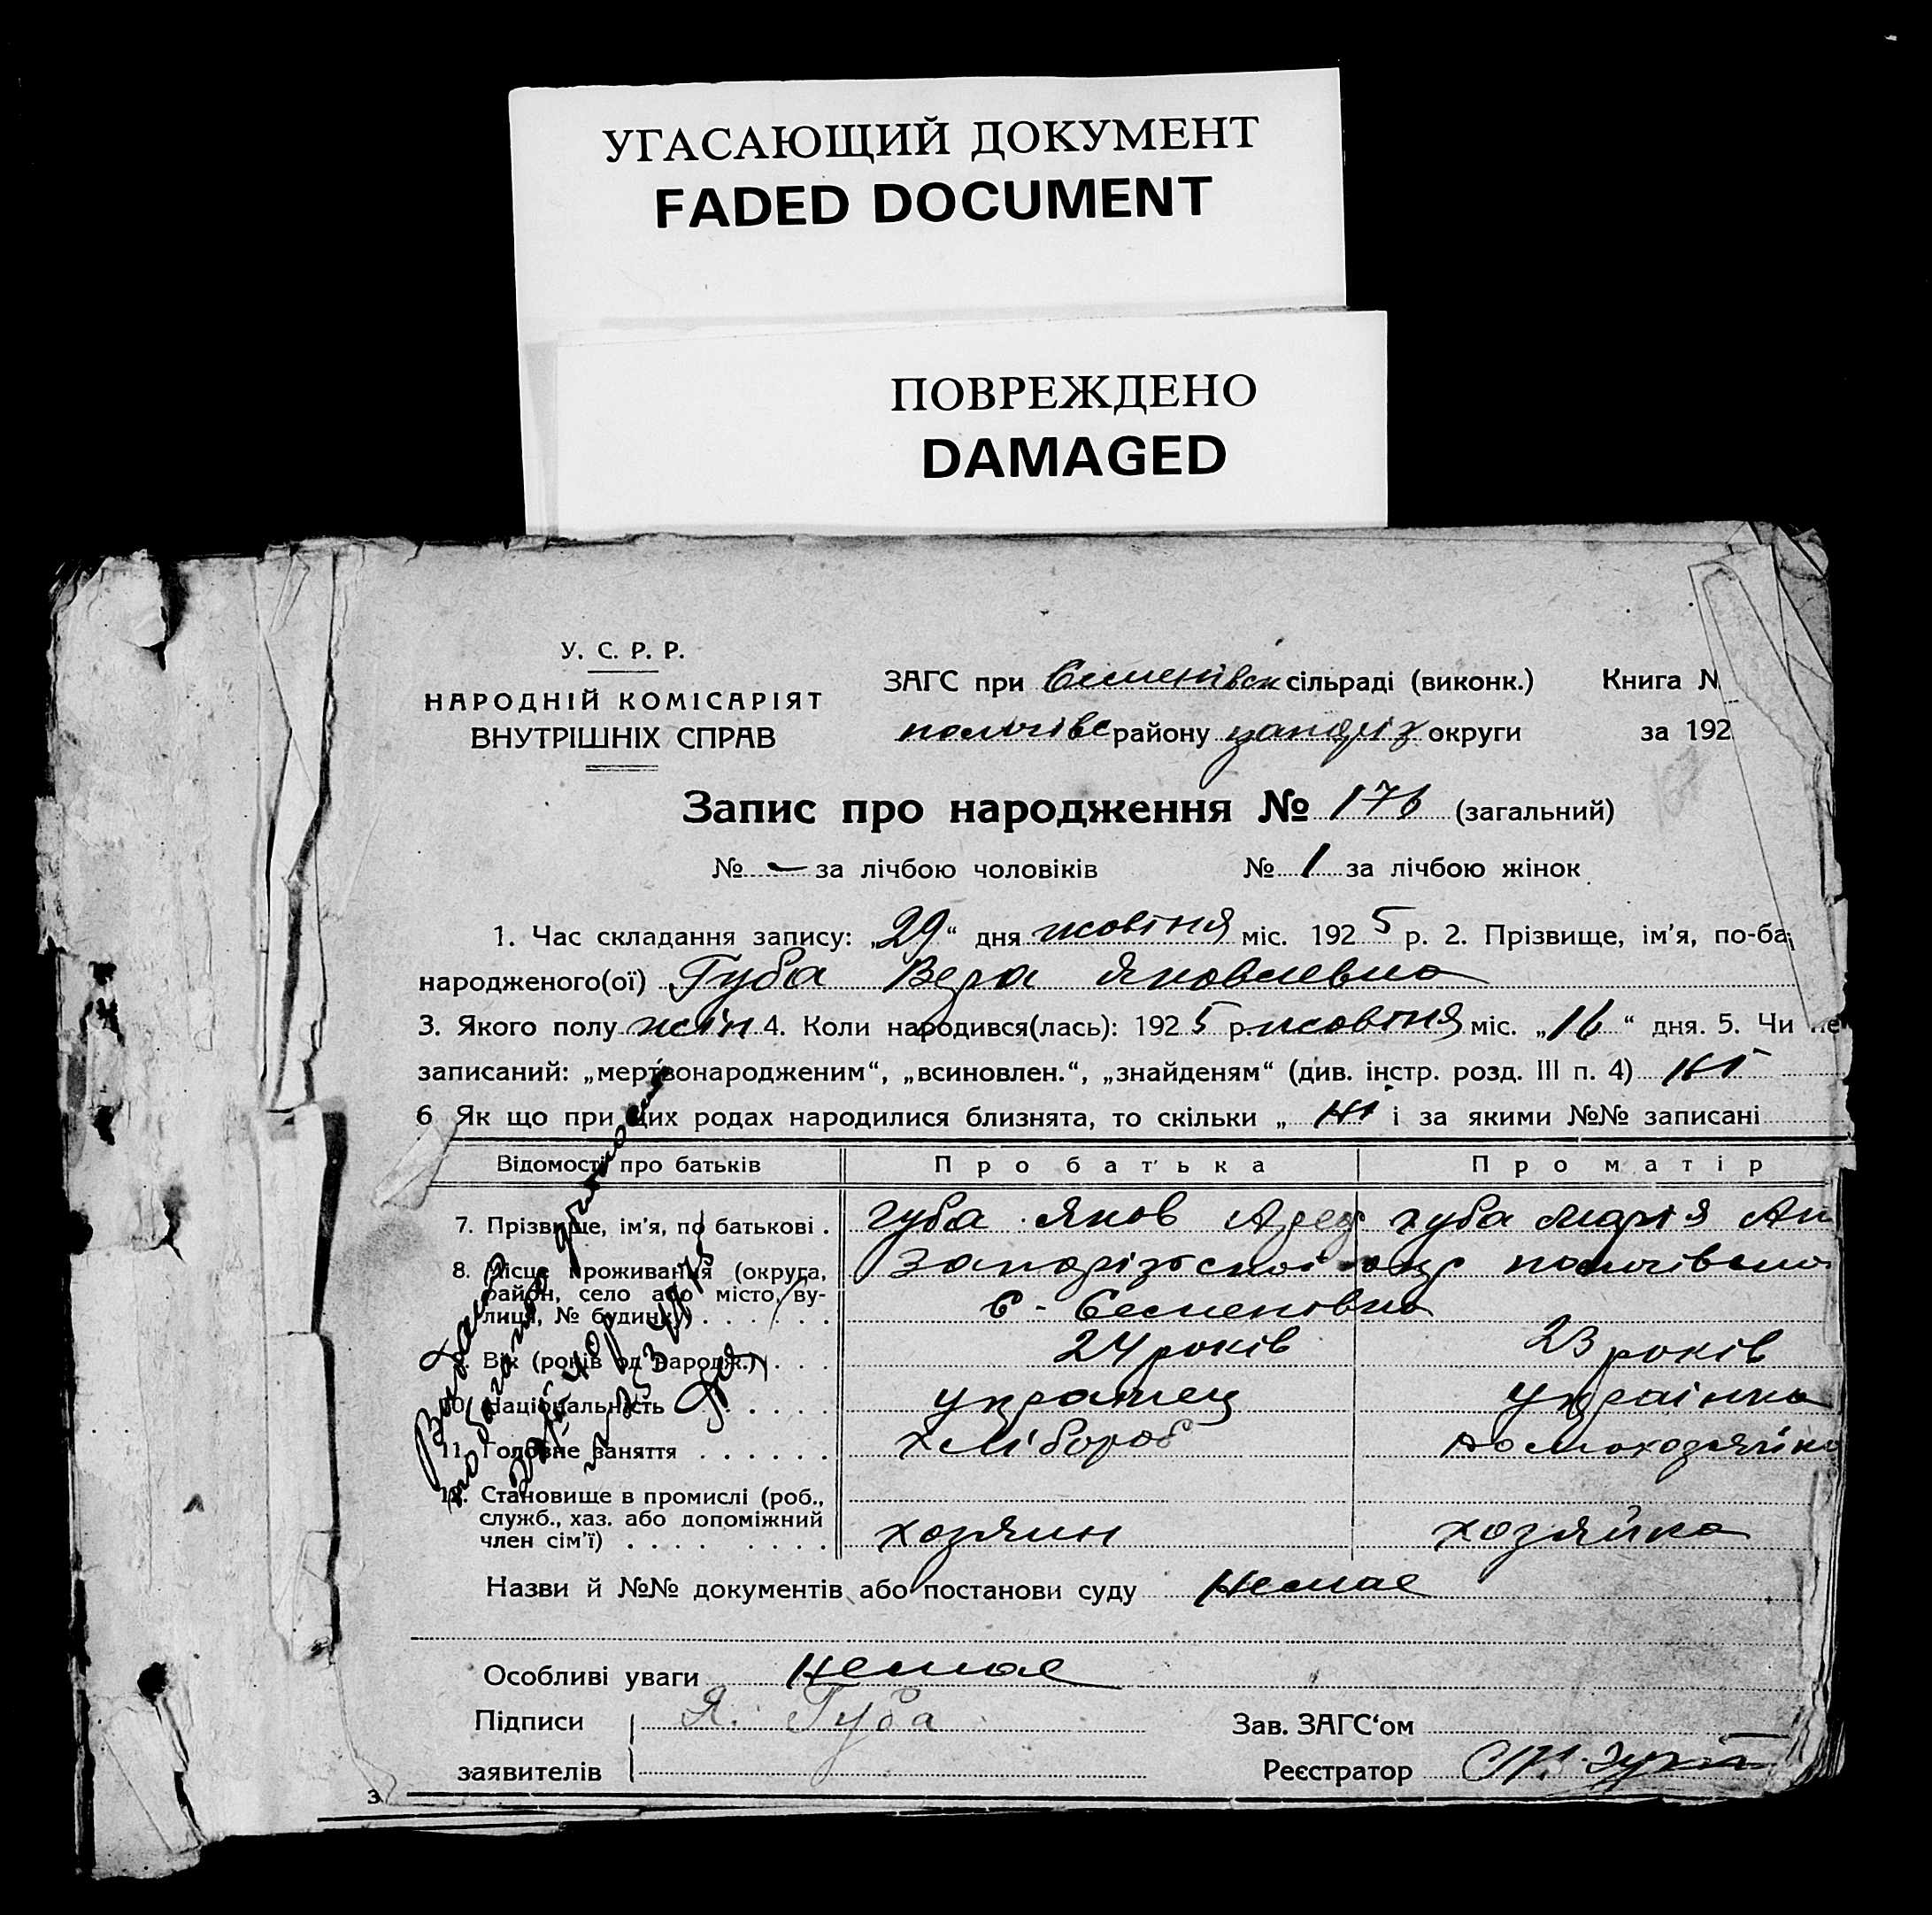 УГАСАЮЩИЙ ДОКУМЕНТ
FADED DOCUMENT
ПОВРЕЖДЕНО
DAMAGED
У. С. Р. Р.
НАРОДНІЙ КОМІСАРІЯТ
ВНУТРІШНІХ СПРАВ
ЗАГС при Семенівск сільраді (виконк.) Книга №
пологівс району запоріз округи за 192
Запис про народження № 176 (загальний)
№ - за лічбою чоловіків № 1 за лічбою жінок
1. Час складання запису: „29“ дня жовтня міс. 1925 р. 2. Прізвище, ім'я, по-ба
народженого(ої) Губа Вера Яковлевна
3. Якого полу жін 4. Коли народився(лась): 1925 р. жовтня міс. „16“ дня. 5. Чи не
записаний: „мертвонародженим“, „всиновлен.“, „знайденям“ (див. інстр. розд. III п. 4) ні
6 Як що при цих родах народилися близнята, то скільки „ ні і за якими №№ записані
Відомості про батьків Про батька Про матір
7. Прізвище, ім'я, по батькові . губа Яков губа Марія Ан
8. Місце проживання (округа, Запорізської окр пологівсько
район, село або місто, ву-
лиця, № будинку) . . . . . . с - Семеновка
Вік (років од народж.) . . . 24 років 23 років
10. Національність . . . . . украінец украінка
11. Головне заняття . . . . . . хлібороб домохозяйка
12. Становище в промислі (роб.,
служб., хаз. або допоміжний
член сім'ї) . . . . . . . . хозяин хозяйка
Назви й №№ документів або постанови суду Немае
Особливі уваги Немае
Підписи Я. Губа Зав. ЗАГС‘ом
заявителів Реєстратор
3